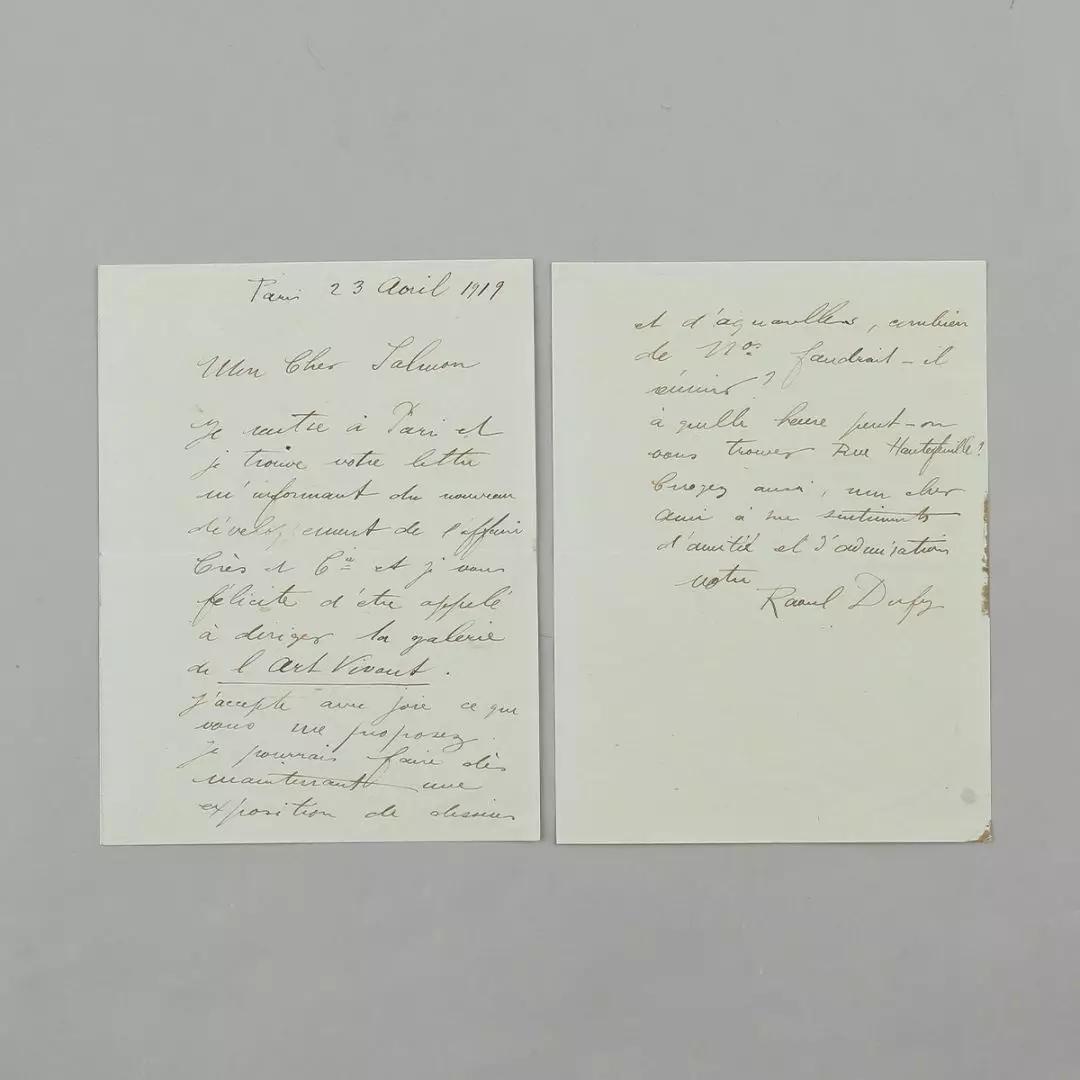 Paris 23 Avril 1919
Mon Cher Salmon
Je rentre à Paris et
je trouve votre lettre
m'informant du nouveau
développement de l'affaire
Crès et Cie et je vous
félicite d'être appelé
à diriger la galerie
de l'Art Vivant.
J'accepte avec joie ce que
vous me proposez.
je pourrais faire dès
maintenant une
exposition de dessins
et d'aquarelles, combien
de Nos faudrait-il
réunir?
à quelle heure peut-on
vous trouver Rue Hautefeuille?
Croyez aussi, mon cher
ami à me sentiments
d'amitié et d'admiration
votre
Raoul Dufy